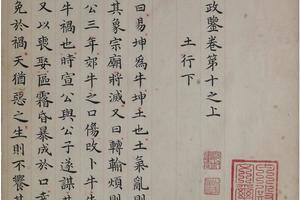 政鑒卷第十之上
土行下
曰易坤爲牛坤土也土氣亂則
其象宗廟將滅又曰轉輸煩則
公三年郊牛之口傷改卜牛牛
牛禍也時宣公與公子遂謀共
又以喪娶區霿昏暴成於口幸
免於禍天猶惡之生則不饗其